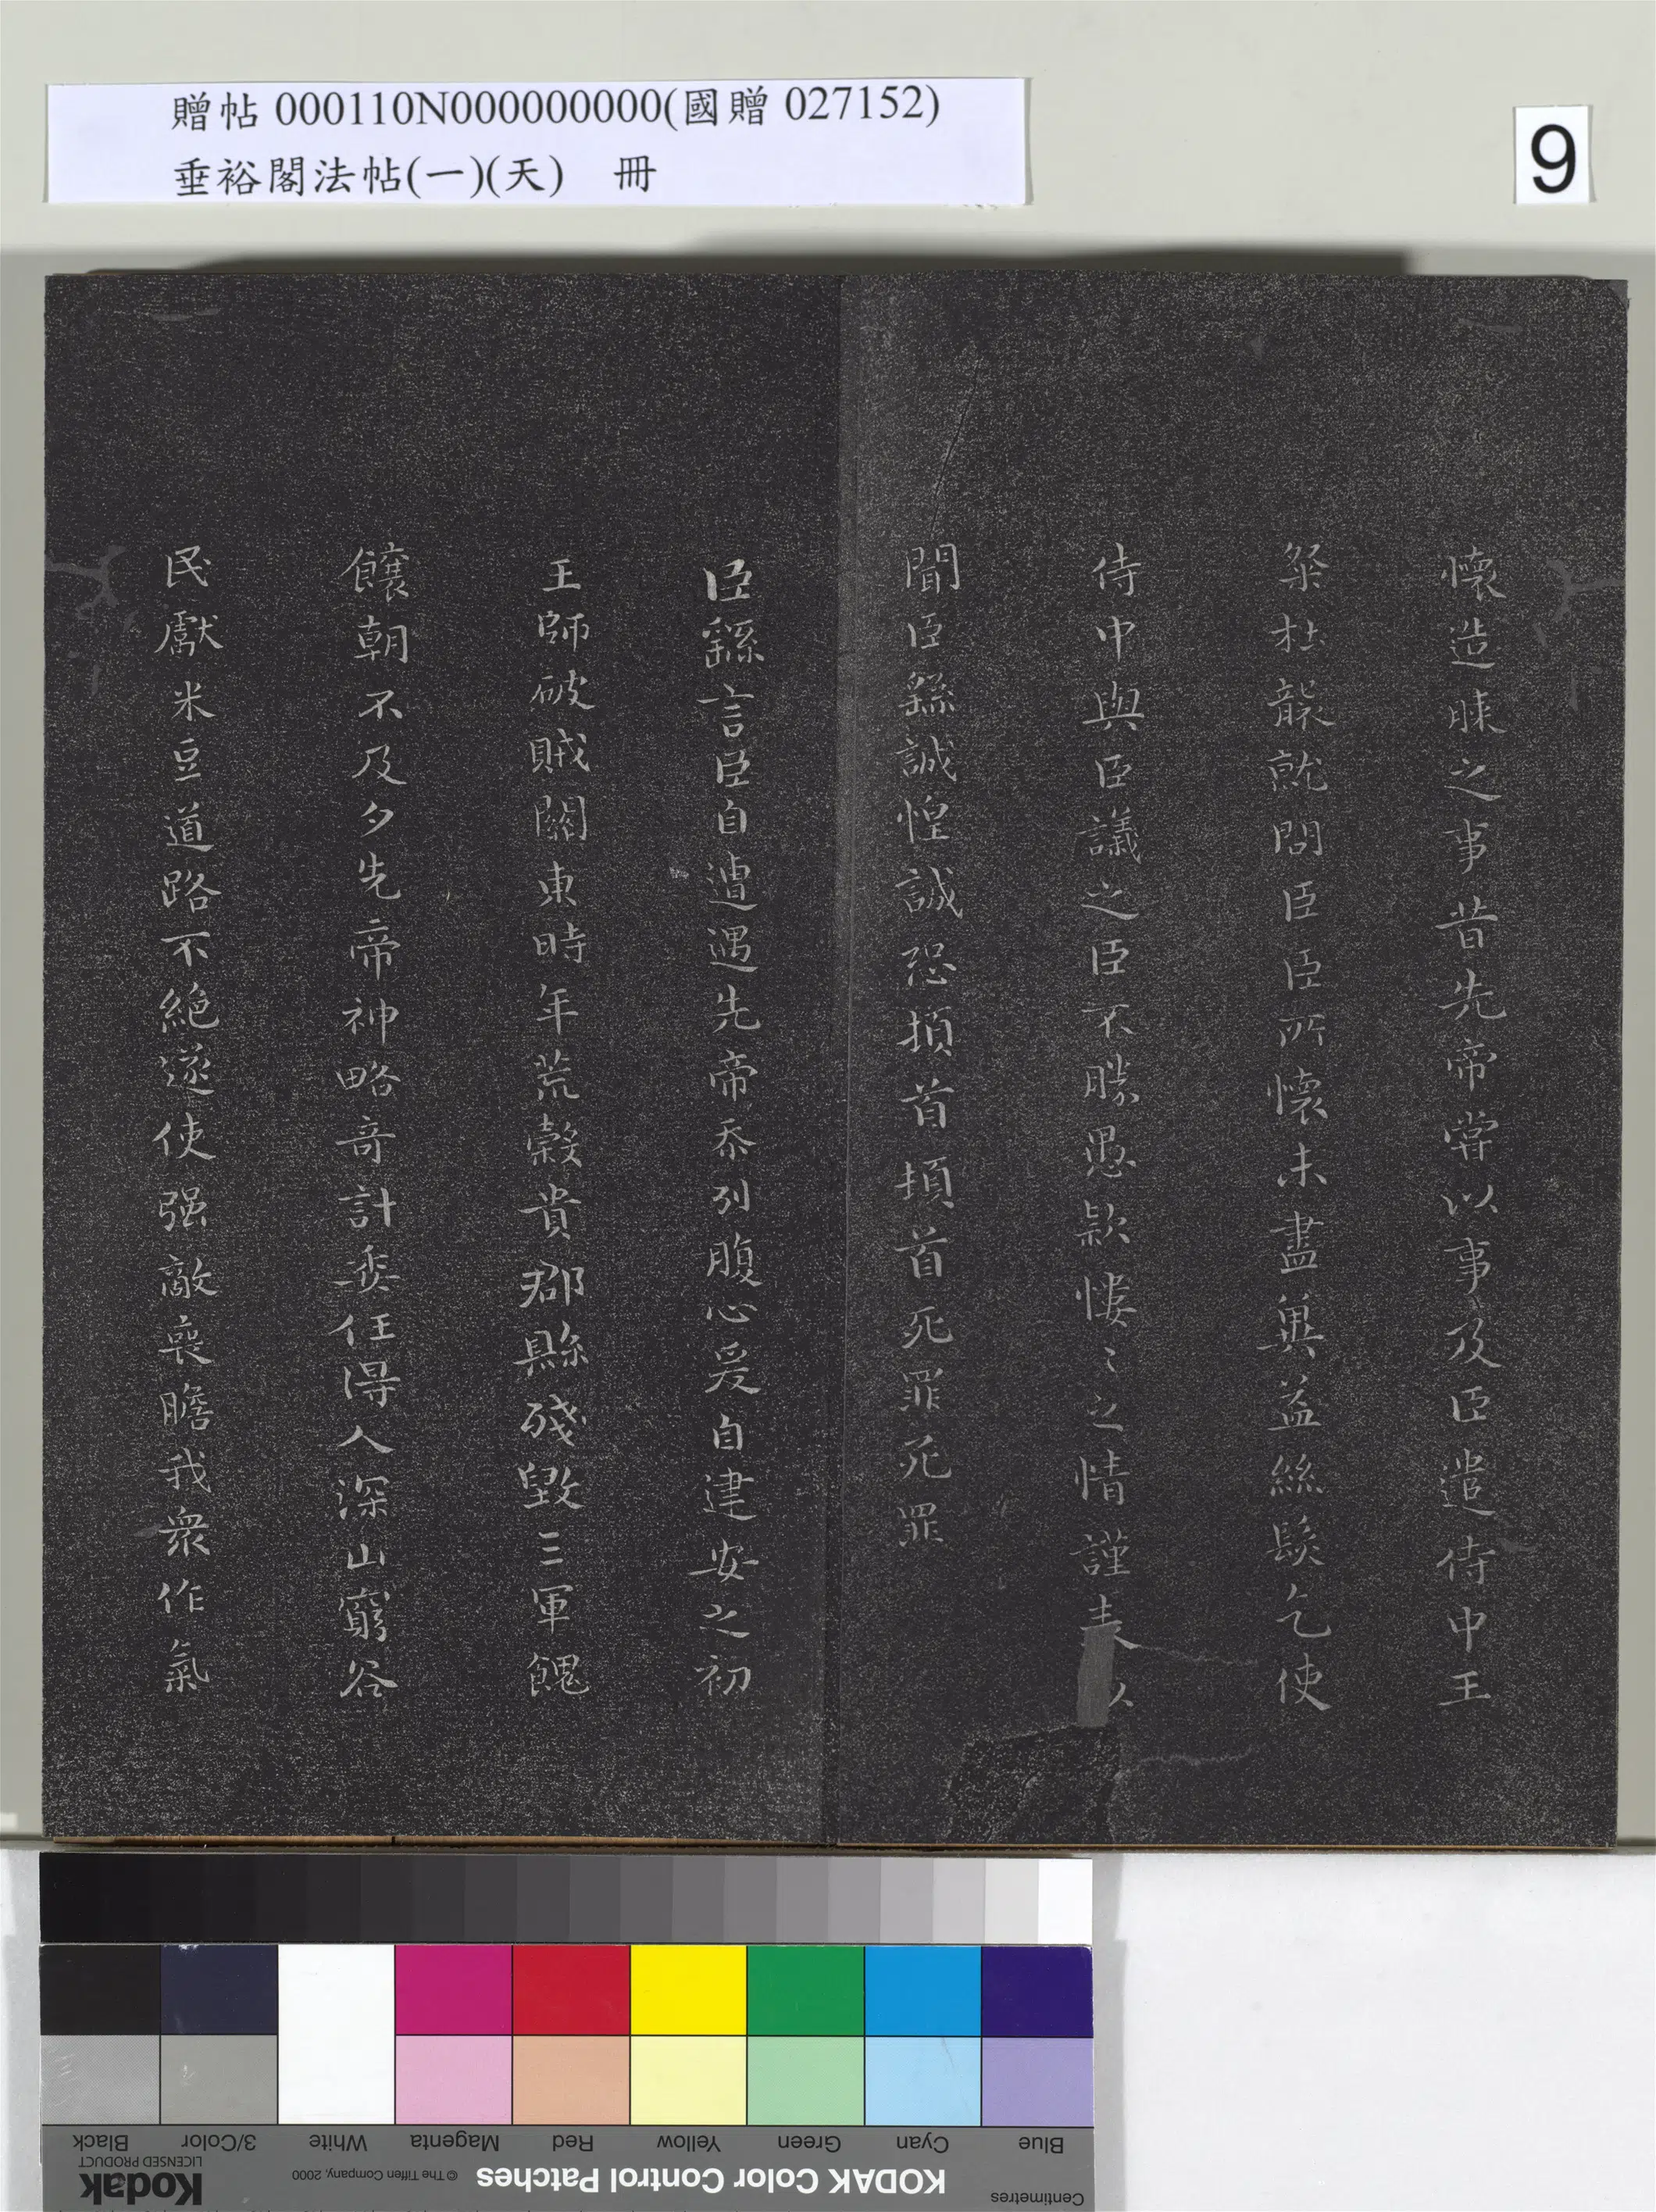 贈帖 000110N000000000(國贈 027152)
垂裕閣法帖(一)(天)　冊
9
懷造膝之事昔先帝嘗以事及臣遣侍中王
粲杜襲就問臣臣所懷未盡奧益絲髮乞使
侍中與臣議之臣不勝愚款慺〻之情謹表以
聞臣繇誠惶誠恐頓首頓首死罪死罪
臣繇言臣自遭遇先帝忝列腹心爰自建安之初
王師破賊關東時年荒穀貴郡縣殘毀三軍餽
饟朝不及夕先帝神略奇計委任得人深山窮谷
民獻米豆道路不絕遂使强敵喪瞻我衆作氣
Black
3/Color
White
Magenta
Red
Yellow
Green
Cyan
Blue
Kodak
LICENSED PRODUCT
© The Tiffen Company, 2000
KODAK Color Control Patches
Centimetres